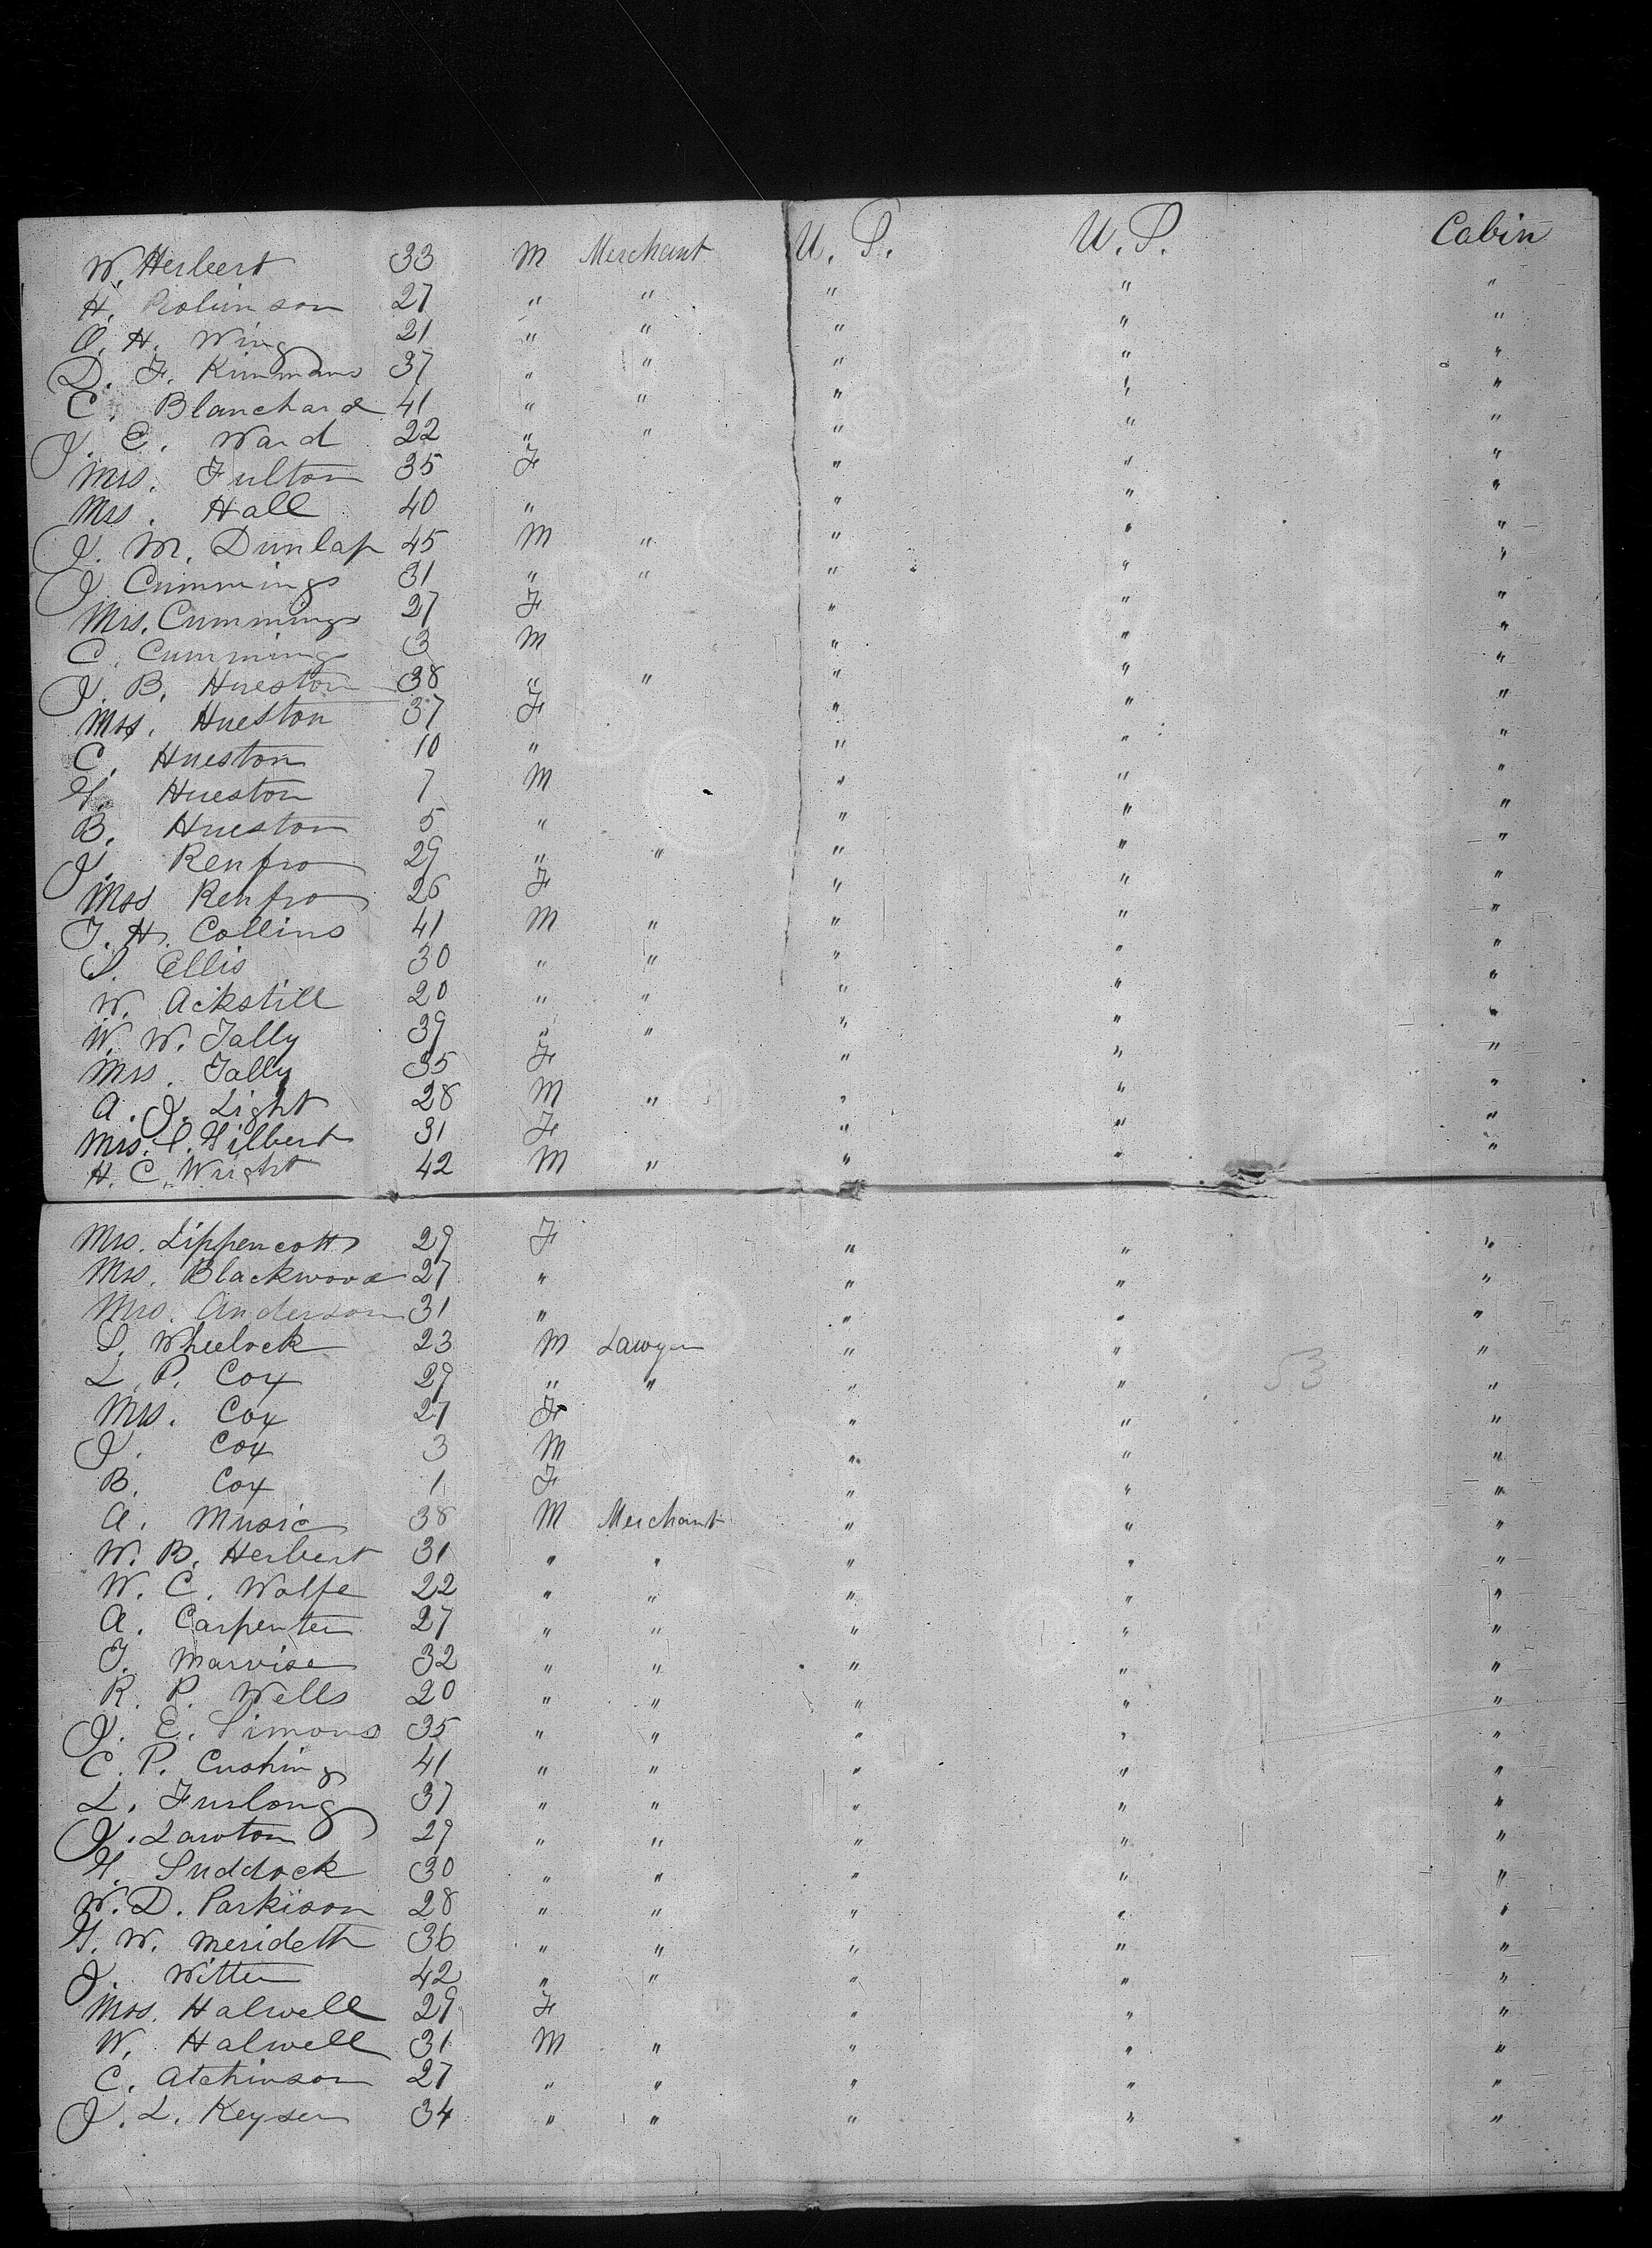 W. Herbert 33 M Merchant U. S. U. S. Cabin
H. Robinson 27 " " " " "
O. H. Wing 21 " " " " "
D. F. Kinmans 37 " " " " "
C. Blanchard 41 " " " " "
J. E. Ward 22 " " " " "
Mrs. Fulton 35 F " " "
Mrs. Hall 40 " " " "
J. M. Dunlap 45 M " " " "
J. Cummings 31 " " " " "
Mrs. Cummings 27 F " " "
C. Cummings 3 M " " "
J. B. Hueston 38 " " " " "
Mrs. Hueston 37 F " " "
C. Hueston 10 " " " "
H. Hueston 7 M " " "
B. Hueston 5 " " " "
J. Renfro 29 " " " " "
Mrs Renfro 26 F " " "
T. H. Collins 41 M " " " "
S. Ellis 30 " " " " "
W. Ackstill 20 " " " " "
W. W. Tally 39 " " " " "
Mrs. Tally 35 F " " "
A. J. Light 28 M " " " "
Mrs. C. Gilbert 31 F " " "
H. C. Wright 42 M " " " "
Mrs. Lippencott 29 F " " "
Mrs. Blackwood 27 " " " "
Mrs. Anderson 31 " " " "
S. Wheelock 23 M Lawyer " " "
L. P. Cox 29 " " " " 53 "
Mrs. Cox 27 F " " "
J. Cox 3 M " " "
B. Cox 1 F " " "
A. Music 38 M Merchant " " "
W. B. Herbert 31 " " " " "
W. C. Wolfe 22 " " " " "
A. Carpenter 27 " " " " "
T. Marvise 32 " " " " "
R. P. Wells 20 " " " " "
J. E. Simons 35 " " " " "
C. P. Cushing 41 " " " " "
L. Furlong 37 " " " " "
J. Lawton 29 " " " " "
H. Suddock 30 " " " " "
W. D. Parkison 28 " " " " "
G. W. Merideth 36 " " " " "
J. Witten 42 " " " " "
Mrs. Halwell 29 F " " "
W. Halwell 31 M " " " "
C. Atchinson 27 " " " " "
J. L. Keyser 34 " " " " "